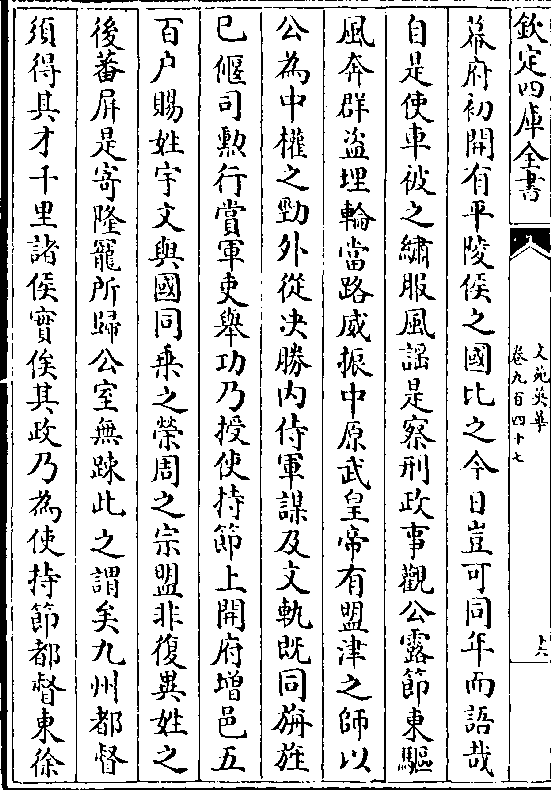 欽定四庫全書
文苑英華
卷九百四十七
幕府初開有平陵侯之國比之今日豈可同年而語哉
自是使車彼之繡服風謡是察刑政事觀公露節東驅
風奔群盗埋輪當路威振中原武皇帝有盟津之師以
公為中權之勁外從决勝内侍軍謀及文軌既同旃旌
已偃司勲行賞軍吏舉功乃授使持節上開府增邑五
百户賜姓宇文與國同乗之榮周之宗盟非復異姓之
後蕃屏是寄隆寵所歸公室無踈此之謂矣九州都督
須得其才千里諸侯實俟其政乃為使持節都督東徐